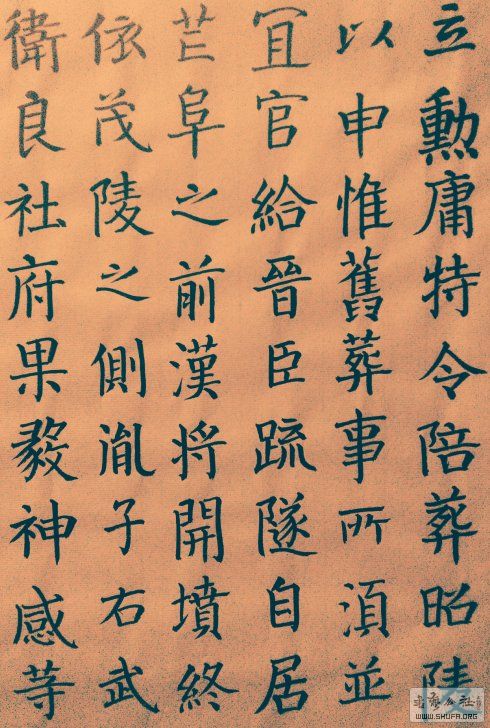 立勲庸特令陪葬昭陵
以申惟舊葬事所湏並
冝官給晉臣䟽隧自居
芒阜之前漢将開墳終
依茂陵之側胤子右武
衛良社府果毅神感等
WWW.SHUFA.ORG